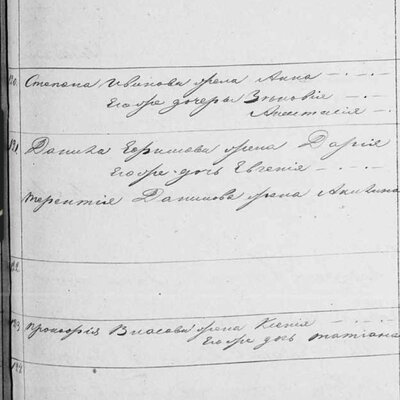 120. Степана Иванова жена Анна
Его же дочери Зѣновія
Анастасія
121 Данила Ефимова жена Дарія
Его же дочь Евгенія
Терентія Данилова жена Акилина
122.
123 Прокофія Власова жена Ксенія
Его же дочь Татіана
124